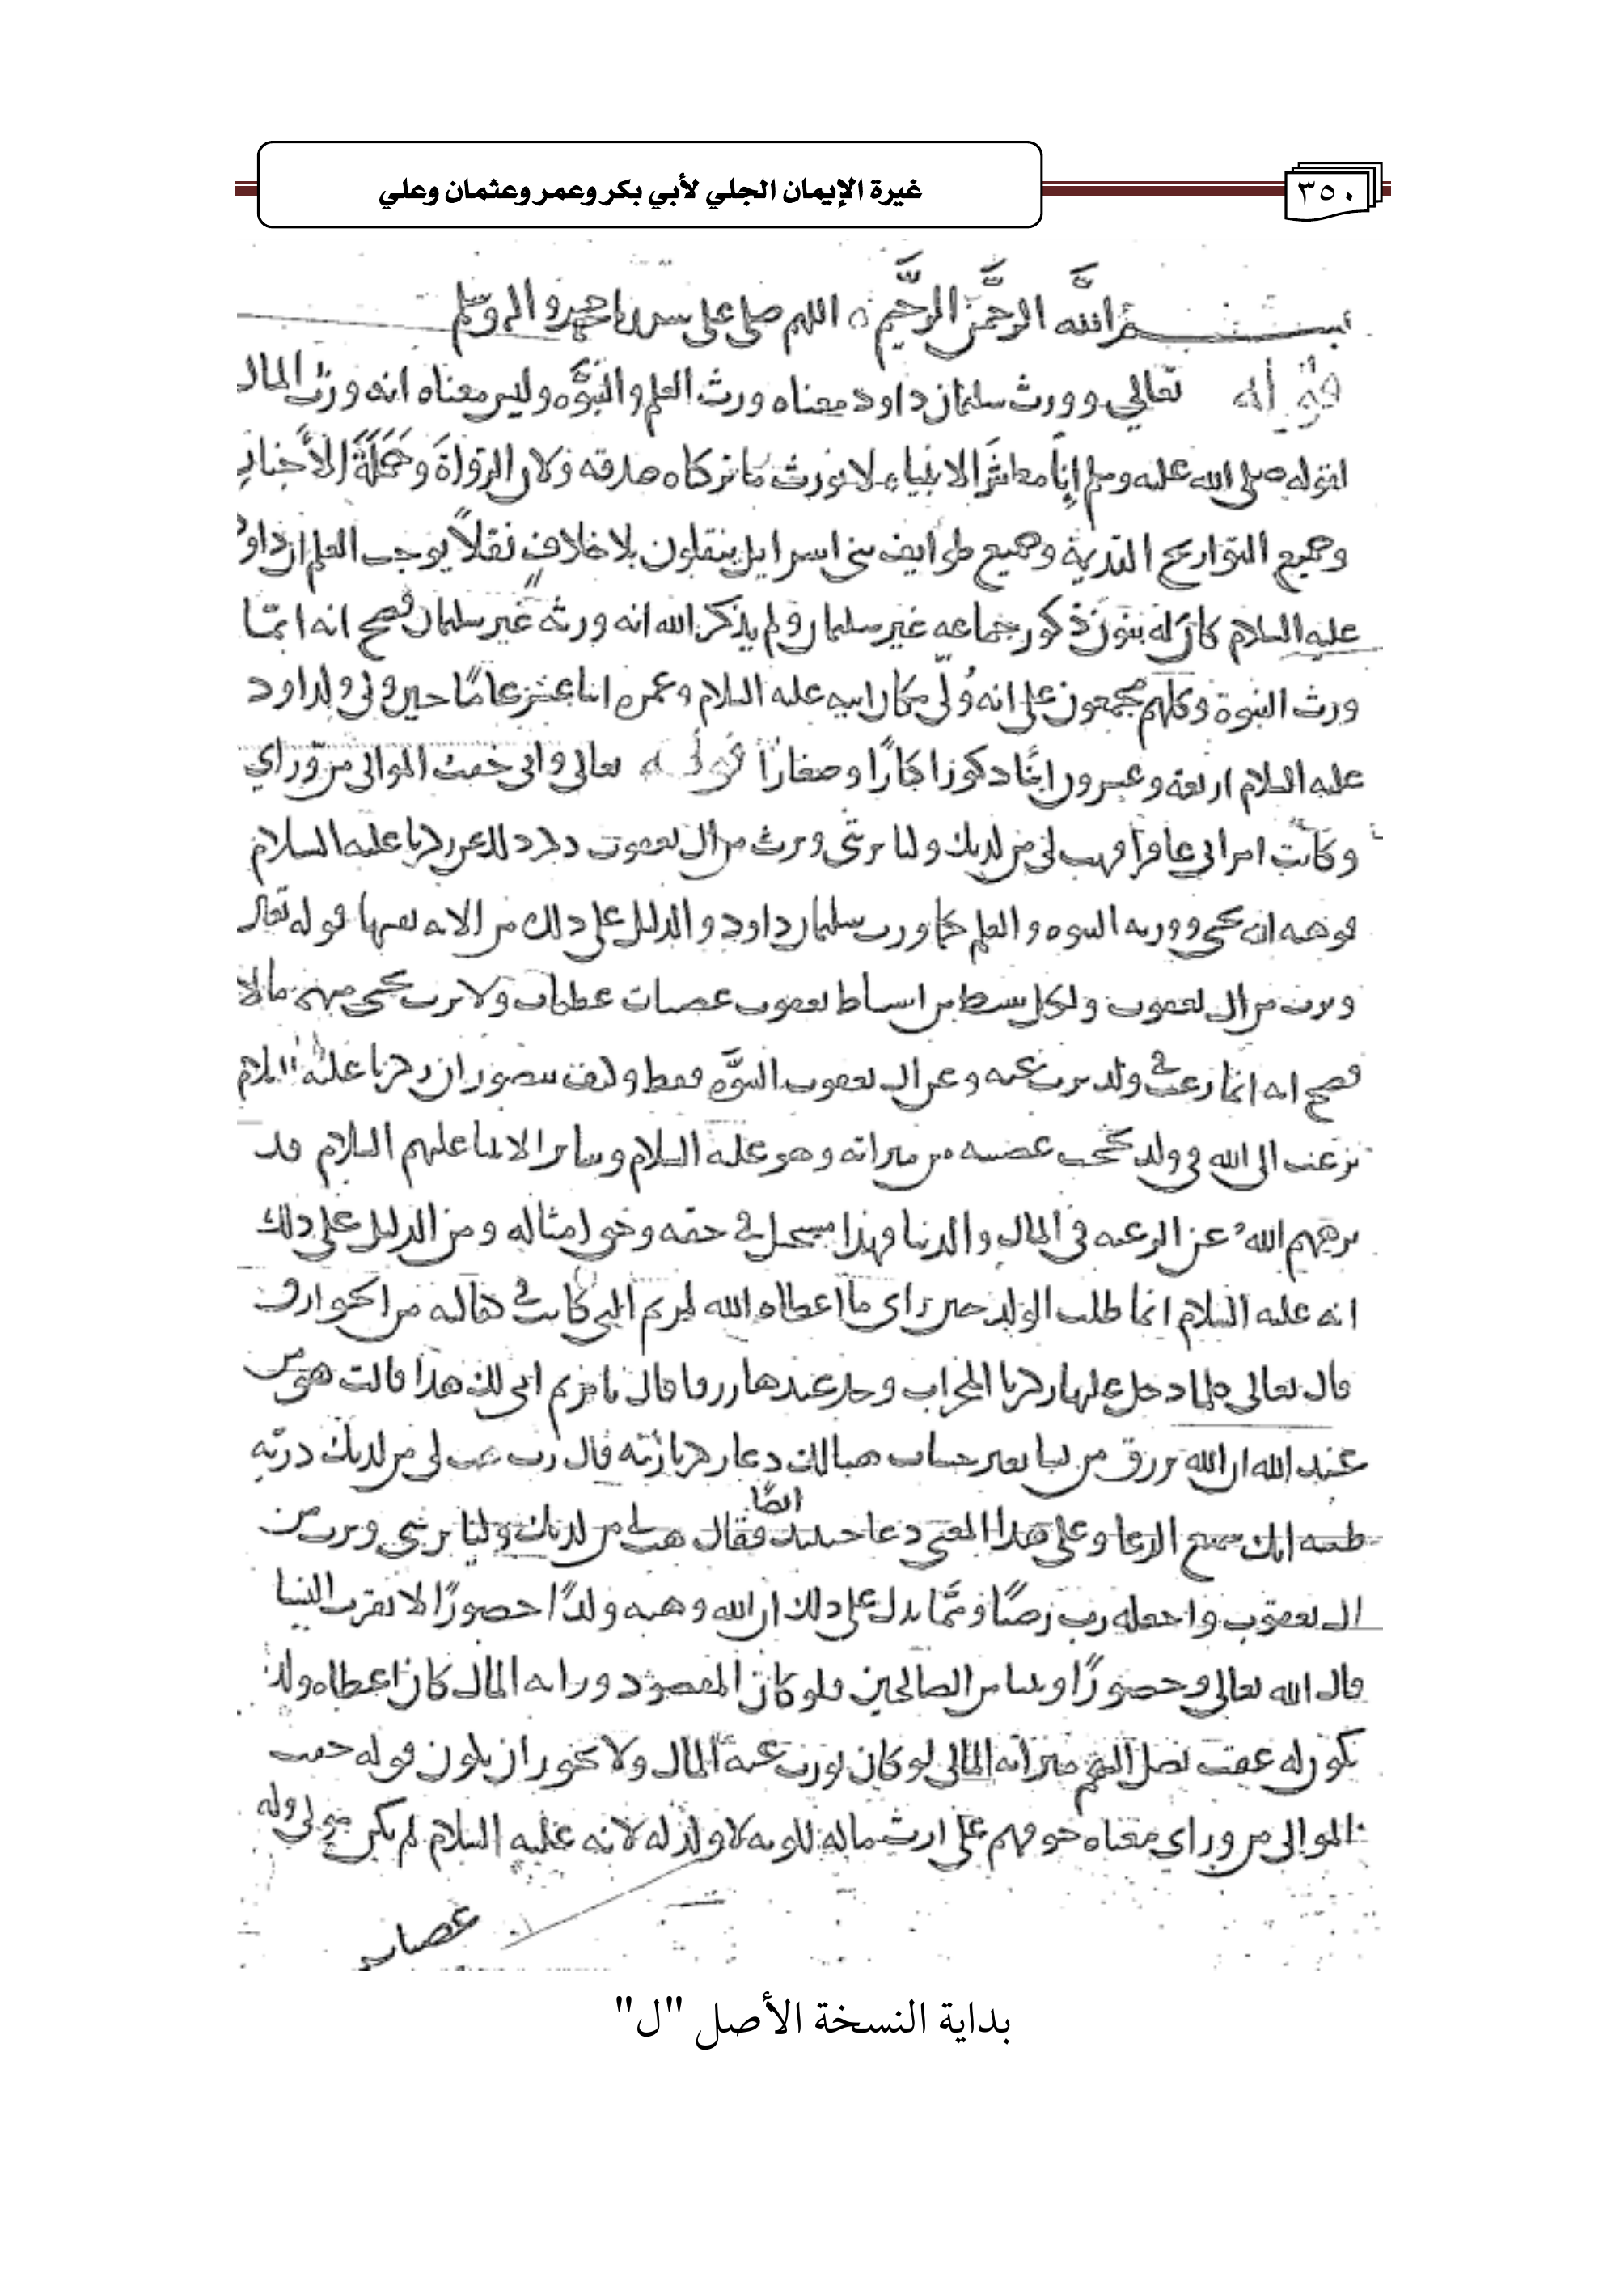 ٣٥٠
غيرة الإيمان الجلي لأبي بكر وعمر وعثمان وعلي
بسم الله الرحمن الرحيم اللهم صل على سيدنا محمد واله وسلم
قوله تعالي وورث سليمان داود معناه ورث العلم والنبوّه وليس معناه انه ورث المال
لقوله صلى الله عليه وسلم إنا معاشر الانبياء لا نورث ما تركناه صدقه ولان الرواة وحملة الأخبار
وجميع التواريخ القديمة وجميع طوايف بني اسرايل ينقلون بلا خلاف نقلاً يوجب العلم ان داود
عليه السلام كان له بنون ذكور جماعه غير سليمان ولم يذكر الله انه ورثه غير سليمان فصح انه انما
ورث النبوة وكلهم مجمعون على انه وُلّي مكان ابيه عليه السلام وعمره اثنا عشر عامًا حين ولي ولداود
عليه السلام اربعة وعشرون ابنًا ذكورًا كبارًا وصغارًا قوله تعالى واني خفت الموالى من وراي
وكانت امراتي عاقرا فهب لي من لدنك وليا يرثني ويرث من آل يعقوب زكريا عليه السلام
فوهبه الله يحيى وورثه النبوه والعلم كما ورث سليمان داود والدليل على ذلك من الاية نفسها قوله تعالى
ويرث من ال يعقوب ولكل سبط من اسباط يعقوب عصبات عظيمات ولا يرث يحيى منهم مالا
فصح انه انما رغب في ولد يرث عنه وعن ال يعقوب النبوّه فقط وكيف يتصور ان زكريا عليه السلام
يرغب الى الله في ولد يحجب عصبته من ميراثه وهو عليه السلام وساير الانبيا عليهم السلام قد
نزههم الله عن الرغبه في المال والدنيا وهذا مستحيل في حقه وحق امثاله ومن الدليل على ذلك
انه عليه السلام انما طلب الولد حين راى ما اعطاه الله لمريم التي كانت في كفالته من الخوارق
قال تعالى كلما دخل عليها زكريا المحراب وجد عندها رزقا قال يا مريم انى لك هذا قالت هو من
عند الله ان الله يرزق من يشا بغير حساب هنالك دعا زكريا ربّه قال رب هب لي من لدنك ذريّه
طيبه انك سميع الدعا وعلى هذا المعنى دعا حينئذ ايضًا فقال هب لي من لدنك وليا يرثني ويرث من
ال يعقوب واجعله رب رضيًا ومّما يدل على ذلك ان الله وهبه ولدًا حصورًا لا يقرب النسا
قال الله تعالى وحصورًا ونبيا من الصالحين فلو كان المقصود وراثه المال كان اعطاه ولد
يكون له عقب تصل اليهم ميراثه المالي لو كان يورث عنه المال ولا يجوز ان يكون قوله خفت
الموالى من وراي معناه خوفهم على ارث ماله لا ولد له لانه عليه السلام لم يكن
عصبات
بداية النسخة الأصل "ل"